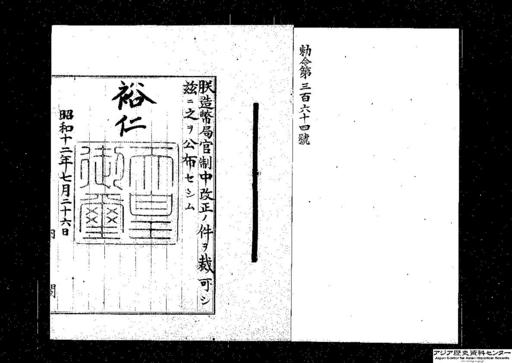 勅令第三百六十四號
朕造幣局官制中改正ノ件ヲ裁可シ
茲ニ之ヲ公布セシム
裕仁
天皇御璽
昭和十二年七月二十六日
内閣
アジア歴史資料センター
Japan Center for Asian Historical Records